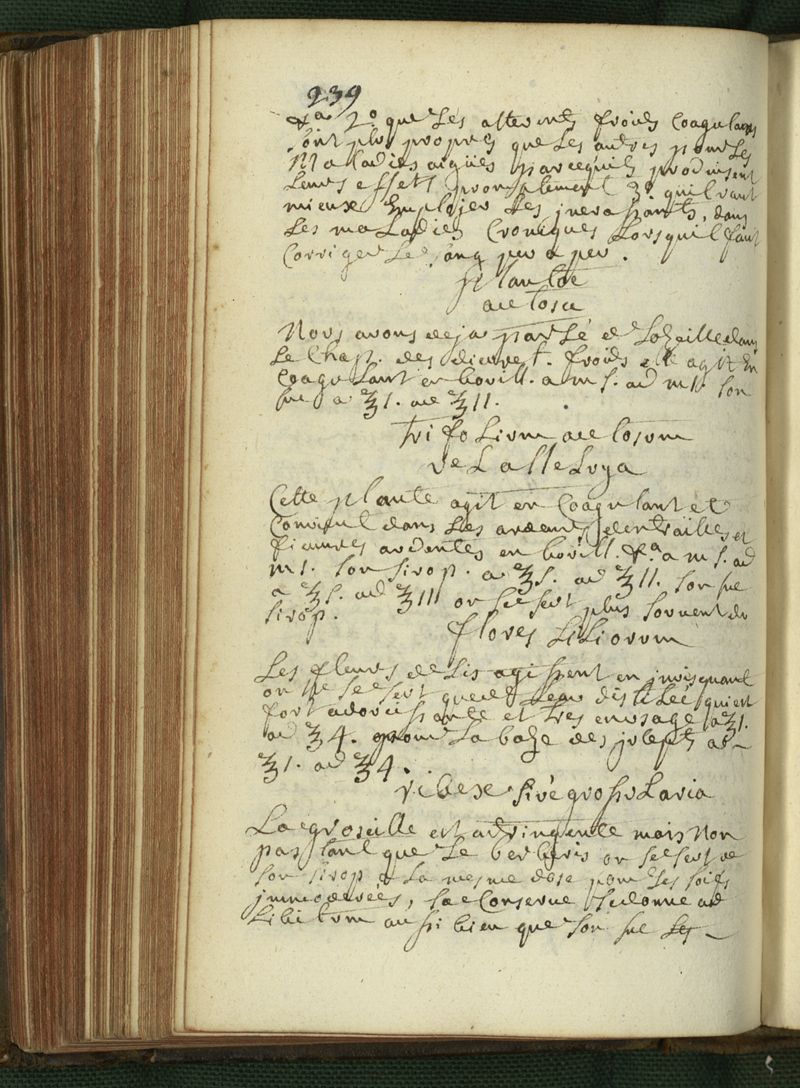 239
&a 2o que Les alterants froids Coagulants
sont plus propres que Les autres pour Les
Maladies aigües parcequils produisent
Leurs effets promptement 3o quil vaut
mieux Employer Les incrassants, dans
Les maLadies Croniques Lorsquil faut
Corriger Le sang peu a peu.
plantae
acetosa
Nous avons deja parLé de Lozeille dans
Le Chap. des diuret. froids elle agit En
CoaguLant en bouill. a m s. ad m 1. son
suc a ℥1. ad ℥11.
trifoLium acetosum
ve L alleLuya
Cette plante agit en CoaguLant et
Convient dans Les ardeurs dentrailles et
fieuures ardentes en bouill. &a a m s. ad
m 1. son sirop. a ℥s. ad ℥11. son suc
a ℥s. ad ℥11 on se sert plus souuent du
sirop.
flores LiLiorum
Les fleurs de Lis agissent en inuisquant
on ne se sert que de Leau distiLée qui est
fort adoucissante et tres en usage a ℥1.
ad ℥4. pour La baze des juLepts a
℥1. ad ℥4.
ribex siue grossuLaria
La groseille est astringente mais Non
pas tant que Le berberis on se sert de
son sirop a La mesme doze pour Les soifs
immoderées, sa Conserue se donne ad
Libitum aussi bien que son suc Les